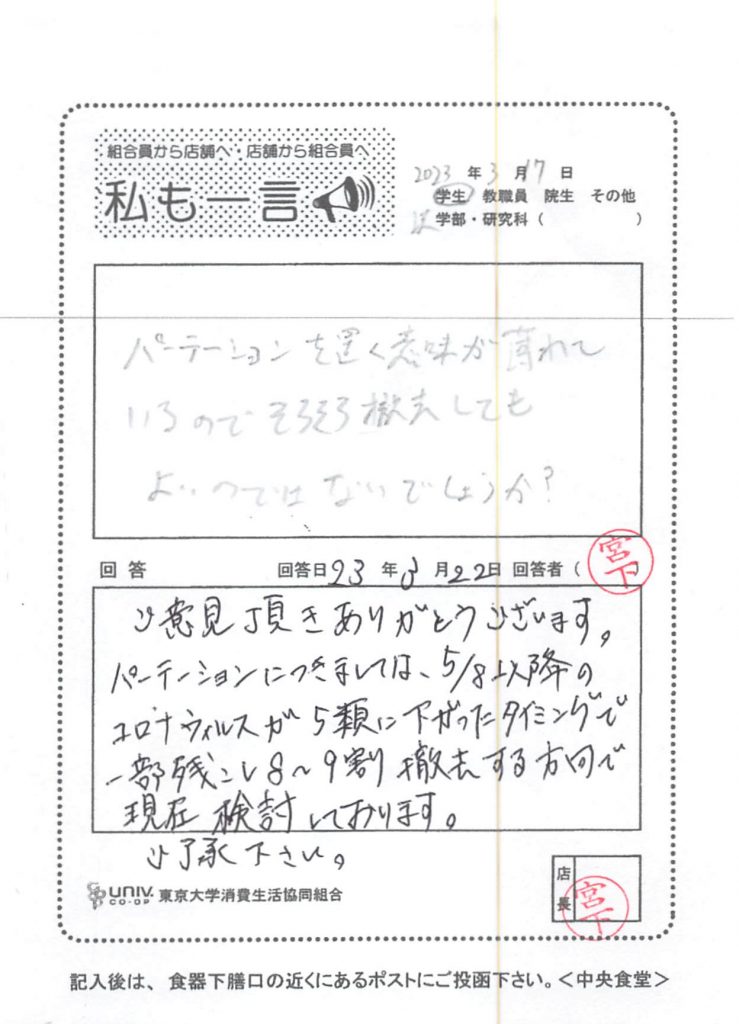 組合員から店舗へ・店舗から組合員へ
私も一言
2023 年 3 月 17 日
学生 教職員 院生 その他
学部・研究科 ( )
パーテーションを置く意味が薄れて
いるのでそろそろ撤去しても
よいのではないでしょうか?
回答 回答日 23 年 3 月 22 日 回答者 ( 宮下
ご意見頂きありがとうございます。
パーテーションにつきましては、5/8以降の
コロナウィルスが5類に下がったタイミングで
一部残こし8〜9割撤去する方向で
現在検討しております。
ご了承下さい。
UNIV. CO-OP 東京大学消費生活協同組合
店長 宮下
記入後は、食器下膳口の近くにあるポストにご投函下さい。<中央食堂>